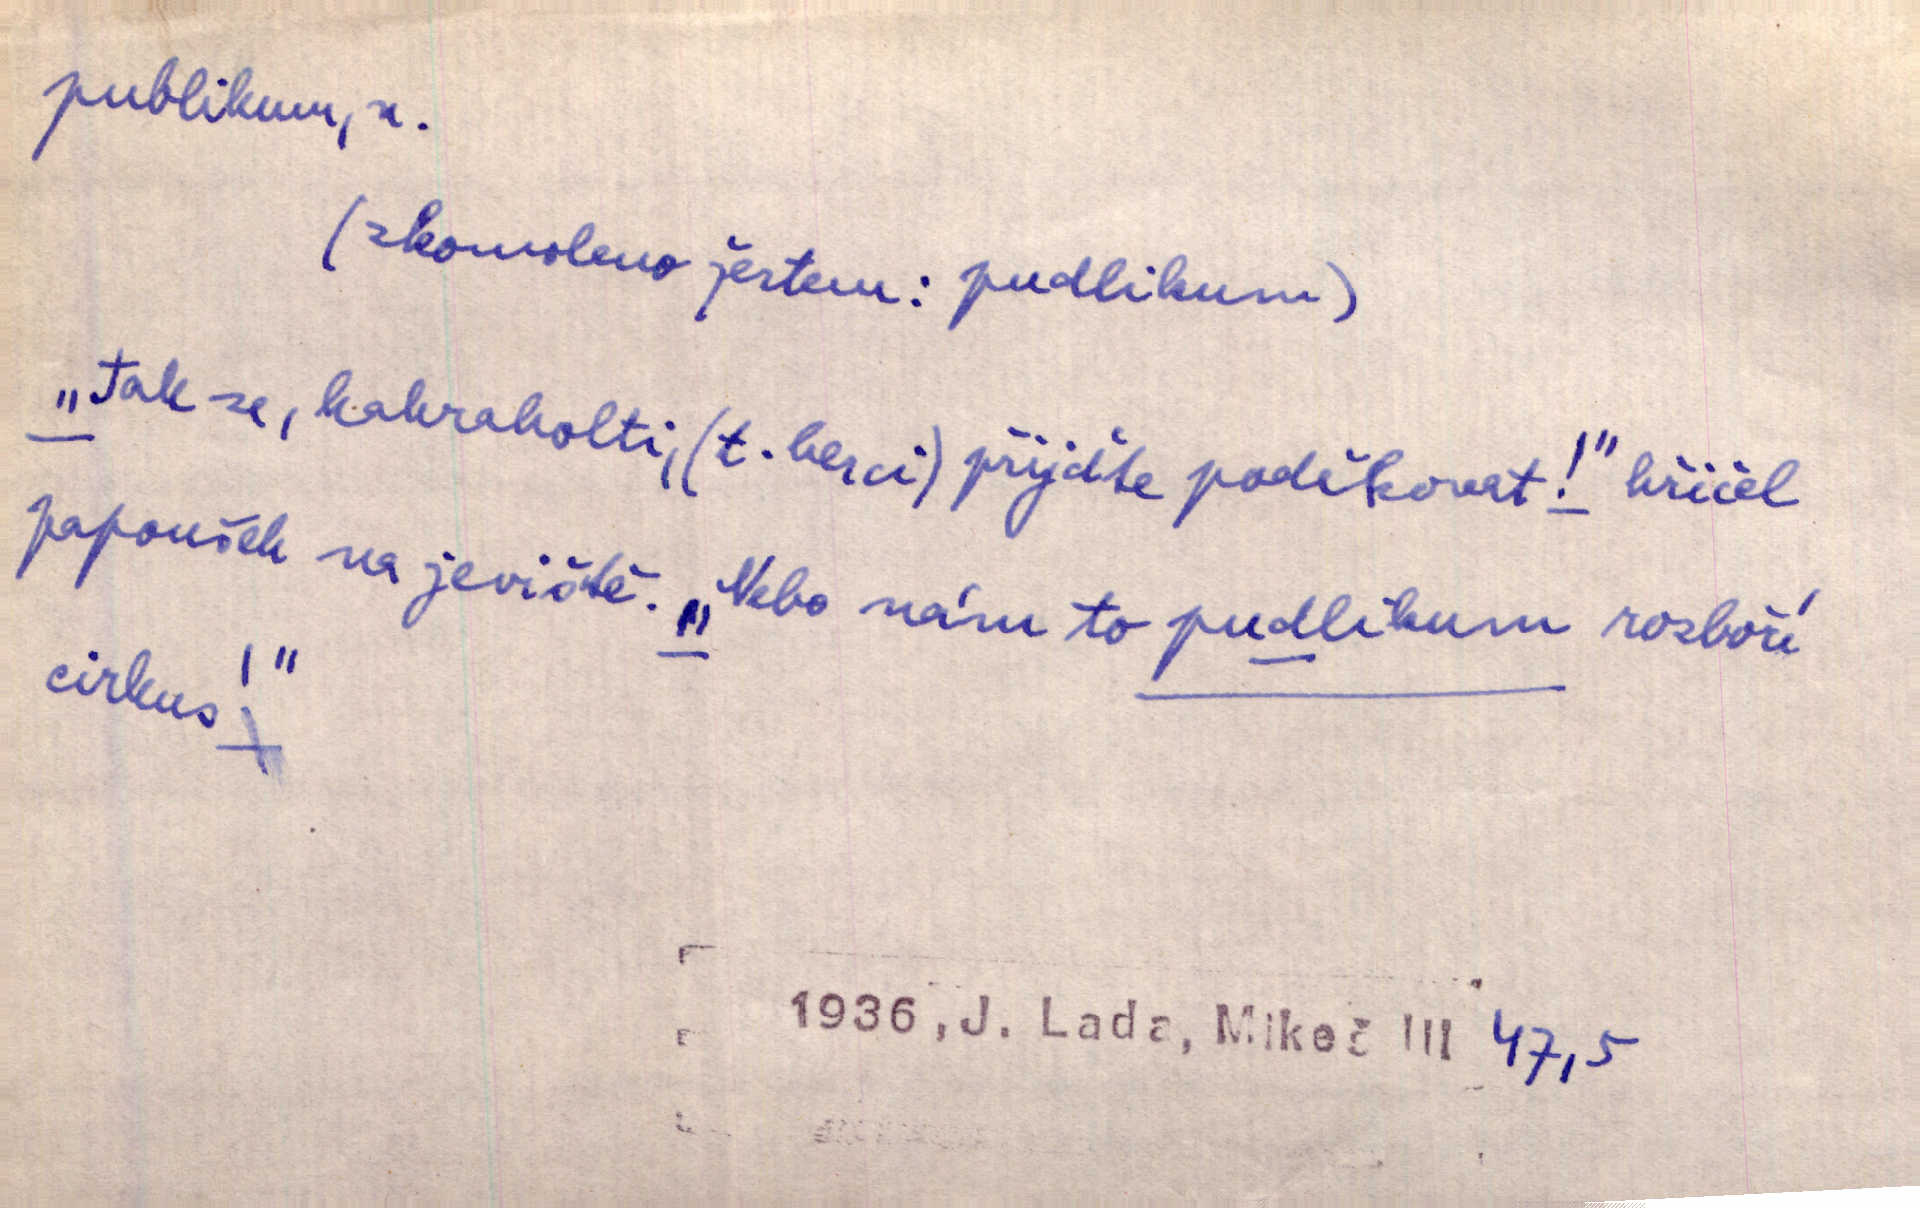 publikum, n.
(zkomoleno žertem: pudlikum)
„Tak se, kakraholti, (t. herci) přijďte poděkovat!" křičel
papoušek na jeviště. „Nebo nám to pudlikum rozboří
cirkus!"
1936, J. Lada, Mikeš III 47,5